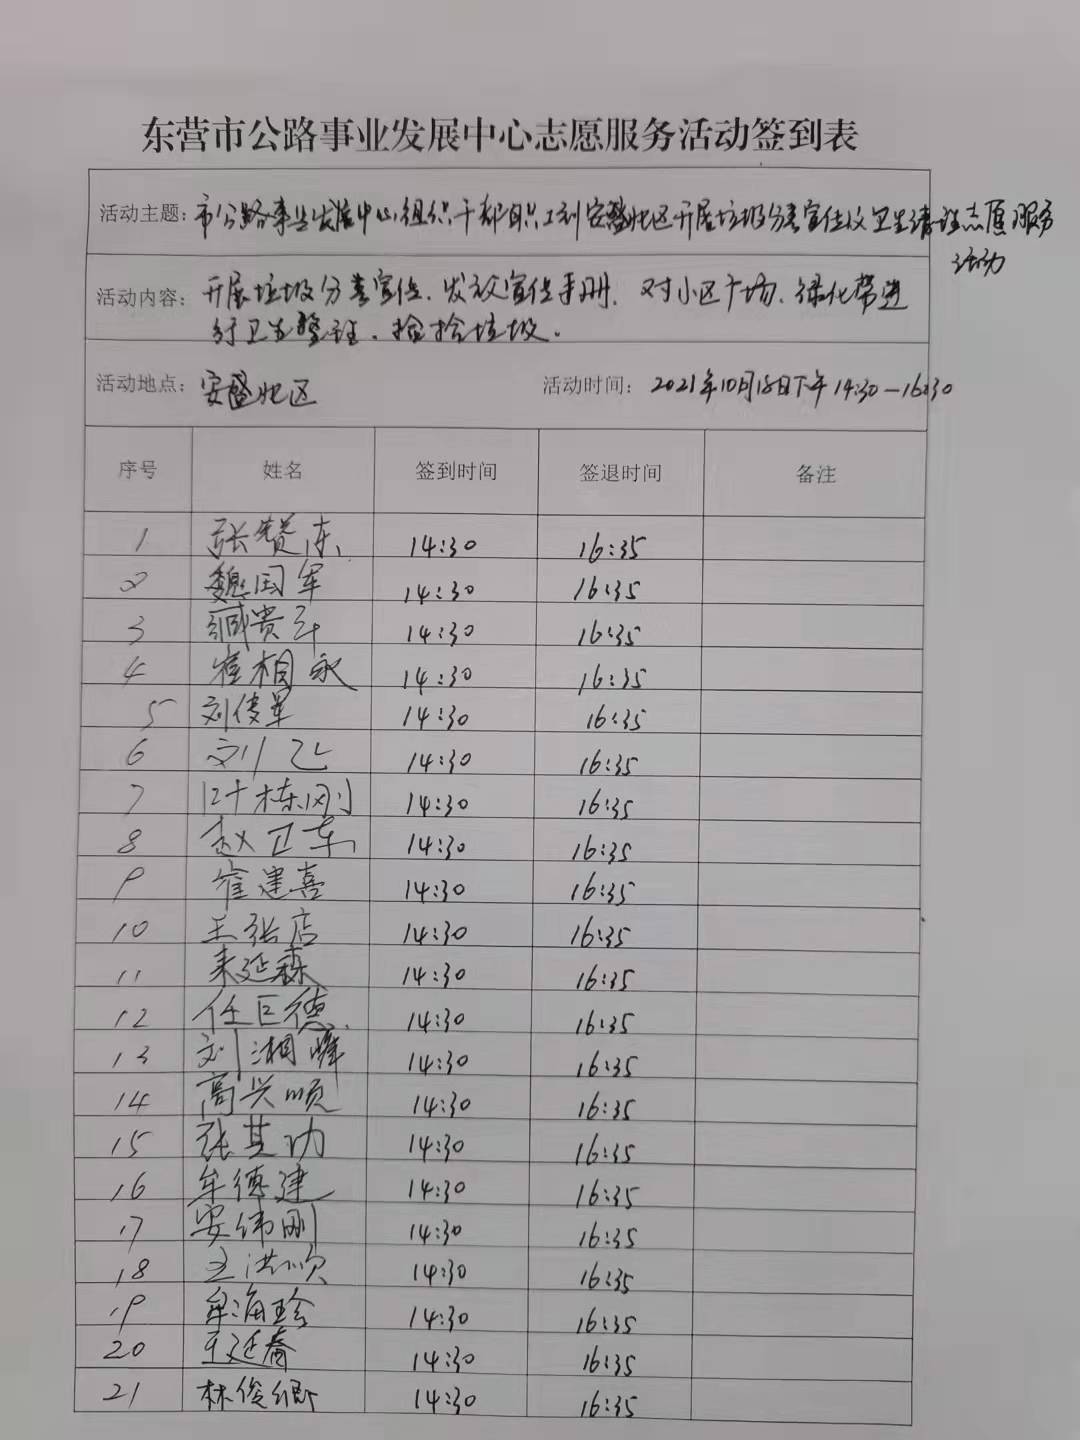 东营市公路事业发展中心志愿服务活动签到表
活动主题：市公路事业发展中心组织干部职工到安盛北区开展垃圾分类宣传及卫生清理志愿服务
活动
活动内容：开展垃圾分类宣传、发放宣传手册，对小区广场、绿化带进
行卫生整理，捡拾垃圾。
活动地点：安盛北区 活动时间：2021年10月18日下午14:30—16:30
序号 姓名 签到时间 签退时间 备注
1 张赞东 14:30 16:35
2 魏国军 14:30 16:35
3 臧贵斗 14:30 16:35
4 崔相永 14:30 16:35
5 刘俊军 14:30 16:35
6 刘飞 14:30 16:35
7 叶栋刚 14:30 16:35
8 赵卫东 14:30 16:35
9 崔建喜 14:30 16:35
10 王张店 14:30 16:35
11 来延森 14:30 16:35
12 任巨德 14:30 16:35
13 刘湘峰 14:30 16:35
14 高兴顺 14:30 16:35
15 张其功 14:30 16:35
16 牟德建 14:30 16:35
17 安纬刚 14:30 16:35
18 王洪顺 14:30 16:35
19 牟海珍 14:30 16:35
20 王延春 14:30 16:35
21 林俊卿 14:30 16:35